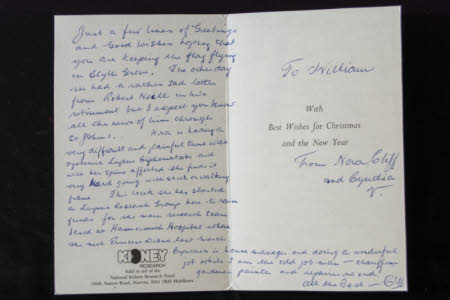 Just a few lines of Greetings
and Good Wishes hoping that
you are keeping the flag flying
in Clyde Grove. The other day
we had a rather sad letter
from Robert Neill in his
retirement but I expect you know
all the news of him through
St John's. Nora is having a
very difficult and painful time with
Systemic Lupus and
with her spine affected she finds it
very hard going with stick or walking
frame. This week she has started
a Lupus Research Group here to raise
funds for the main research team
based at Hammersmith Hospital where
she met Princess Diana last March.
Cynthia is house manager and doing a wonderful
job while I am the odd job man - chauffeur
gardener painter and repairs no end.
All the Best - Cliff
KIDNEY
RESEARCH
Sold in aid of the
National Kidney Research Fund
184B Station Road, Harrow, HA1 2RH Middlesex
To William
With
Best Wishes for Christmas
and the New Year
From Nora Cliff
and Cynthia
V.